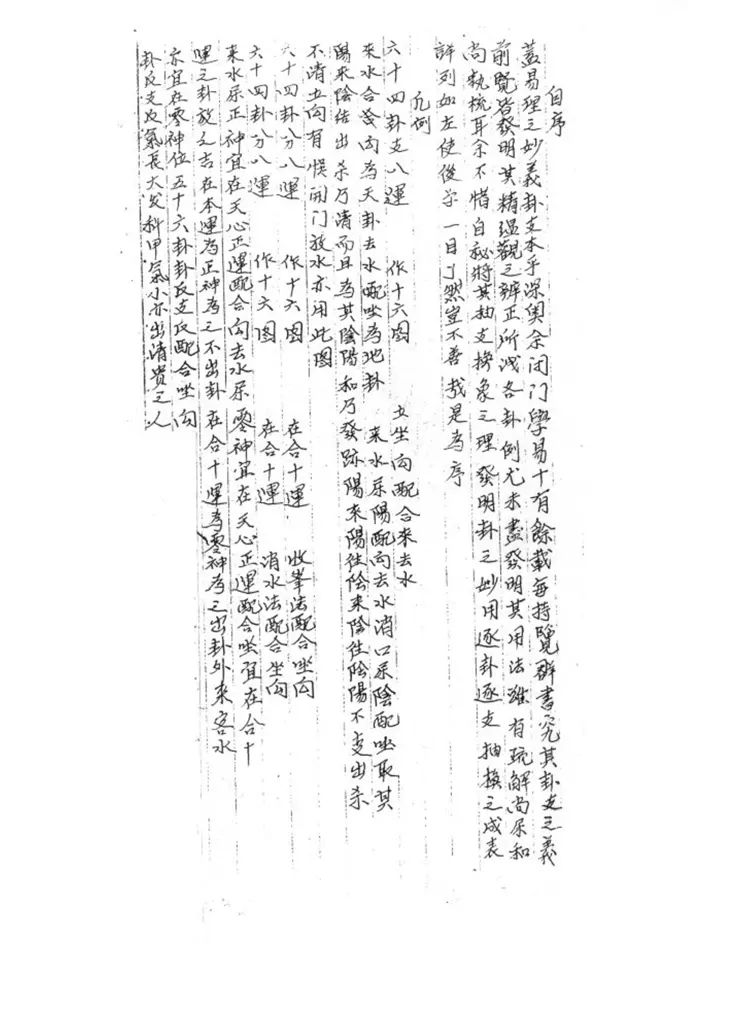 自序
蓋易理之妙義卦支本乎深奧余闭门學易十有餘载每持覽群書究其卦支之義
前覽皆發明其精蕴觀之辨正所戓各卦例尤未盡發明其用法雖有疏解尚屌和
尚執梳耳余不惜自秘將其抽支换象之理發明卦之妙用逐卦逐支抽换之成表
詳列如左使後学一目了然豈不善哉是為序
凡例
六十四卦支八運 作十六图 立坐向配合来去水
來水合發向為天卦去水配坐為地卦 来水屌陽配向去水消口屌陰配坐取其
陽来陰结出杀乃清而且為其陰陽和乃發跡陽來陽住陰来陰住陰陽不支出杀
不清立向有悮闭门放水亦用此图
六十四卦分八運 作十六图 在合十運 收峯法配合坐向
六十四卦分八運 作十六图 在合十運 消水法配合坐向
来水屌正神宜在天心正運配合向去水屌零神宜在天心正運配合坐宜在合十
運之卦放之吉在本運為正神為之不出卦在合十運為零神為之出卦外来客水
亦宜在零神位五十六卦卦反支反配合坐向
卦反支反氣長大发科甲氣小亦出清贵之人